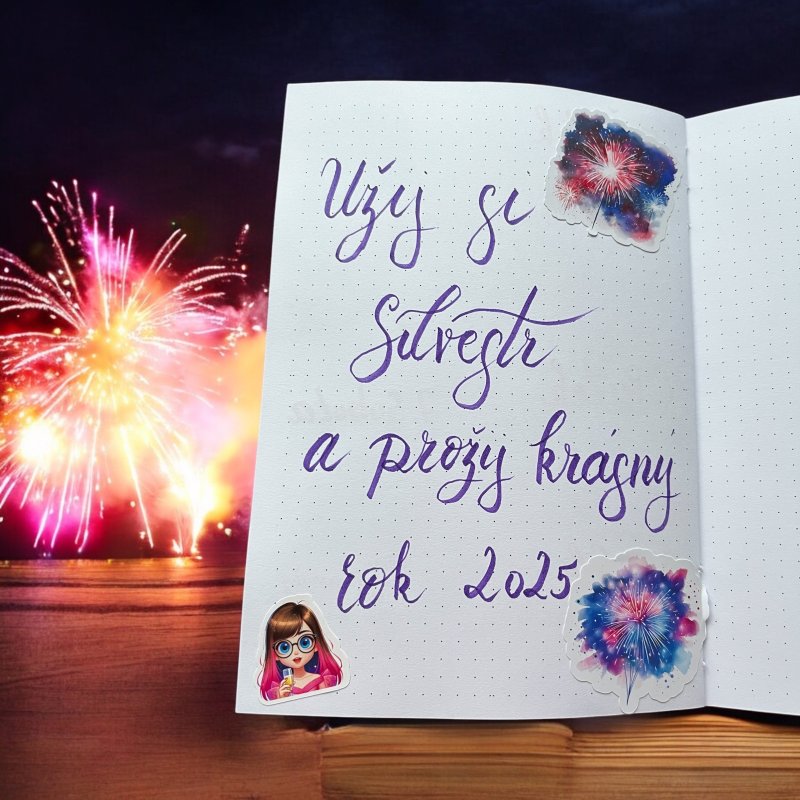 Užij si
Silvestr
a prožij krásný
rok 2025